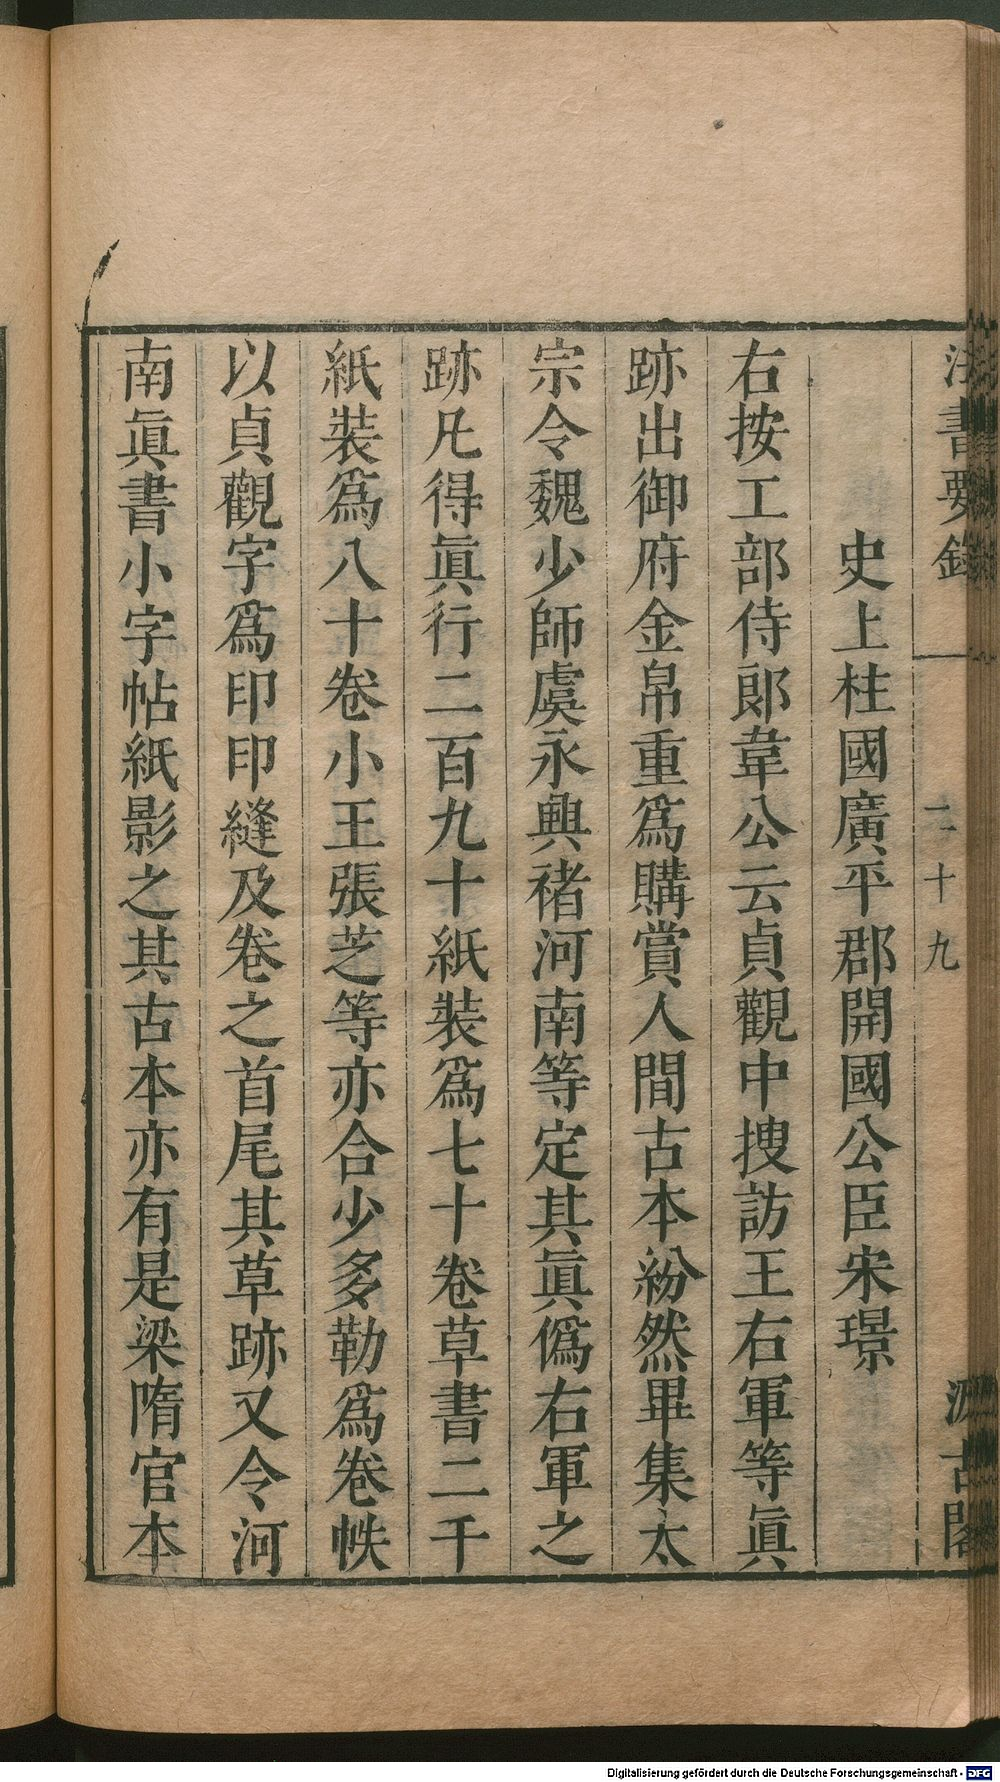 法書要錄
二十九
汲古閣
史上柱國廣平郡開國公臣宋璟
右按工部侍郞韋公云貞觀中捜訪王右軍等眞
跡出御府金帛重爲購賞人間古本紛然畢集太
宗令魏少師虞永興褚河南等定其眞僞右軍之
跡凡得眞行二百九十紙裝爲七十卷草書二千
紙裝爲八十卷小王張芝等亦合少多勒爲卷帙
以貞觀字爲印印縫及卷之首尾其草跡又令河
南眞書小字帖紙影之其古本亦有是梁隋官本
Digitalisierung gefördert durch die Deutsche Forschungsgemeinschaft - DFG